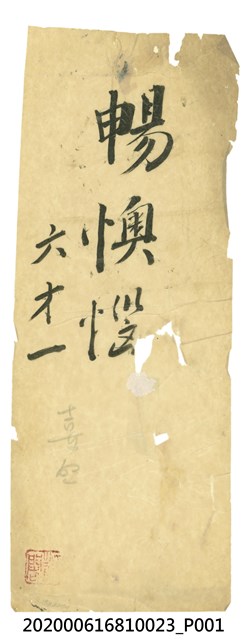 暢懊惱
六才一
喜
202000616810023_P001